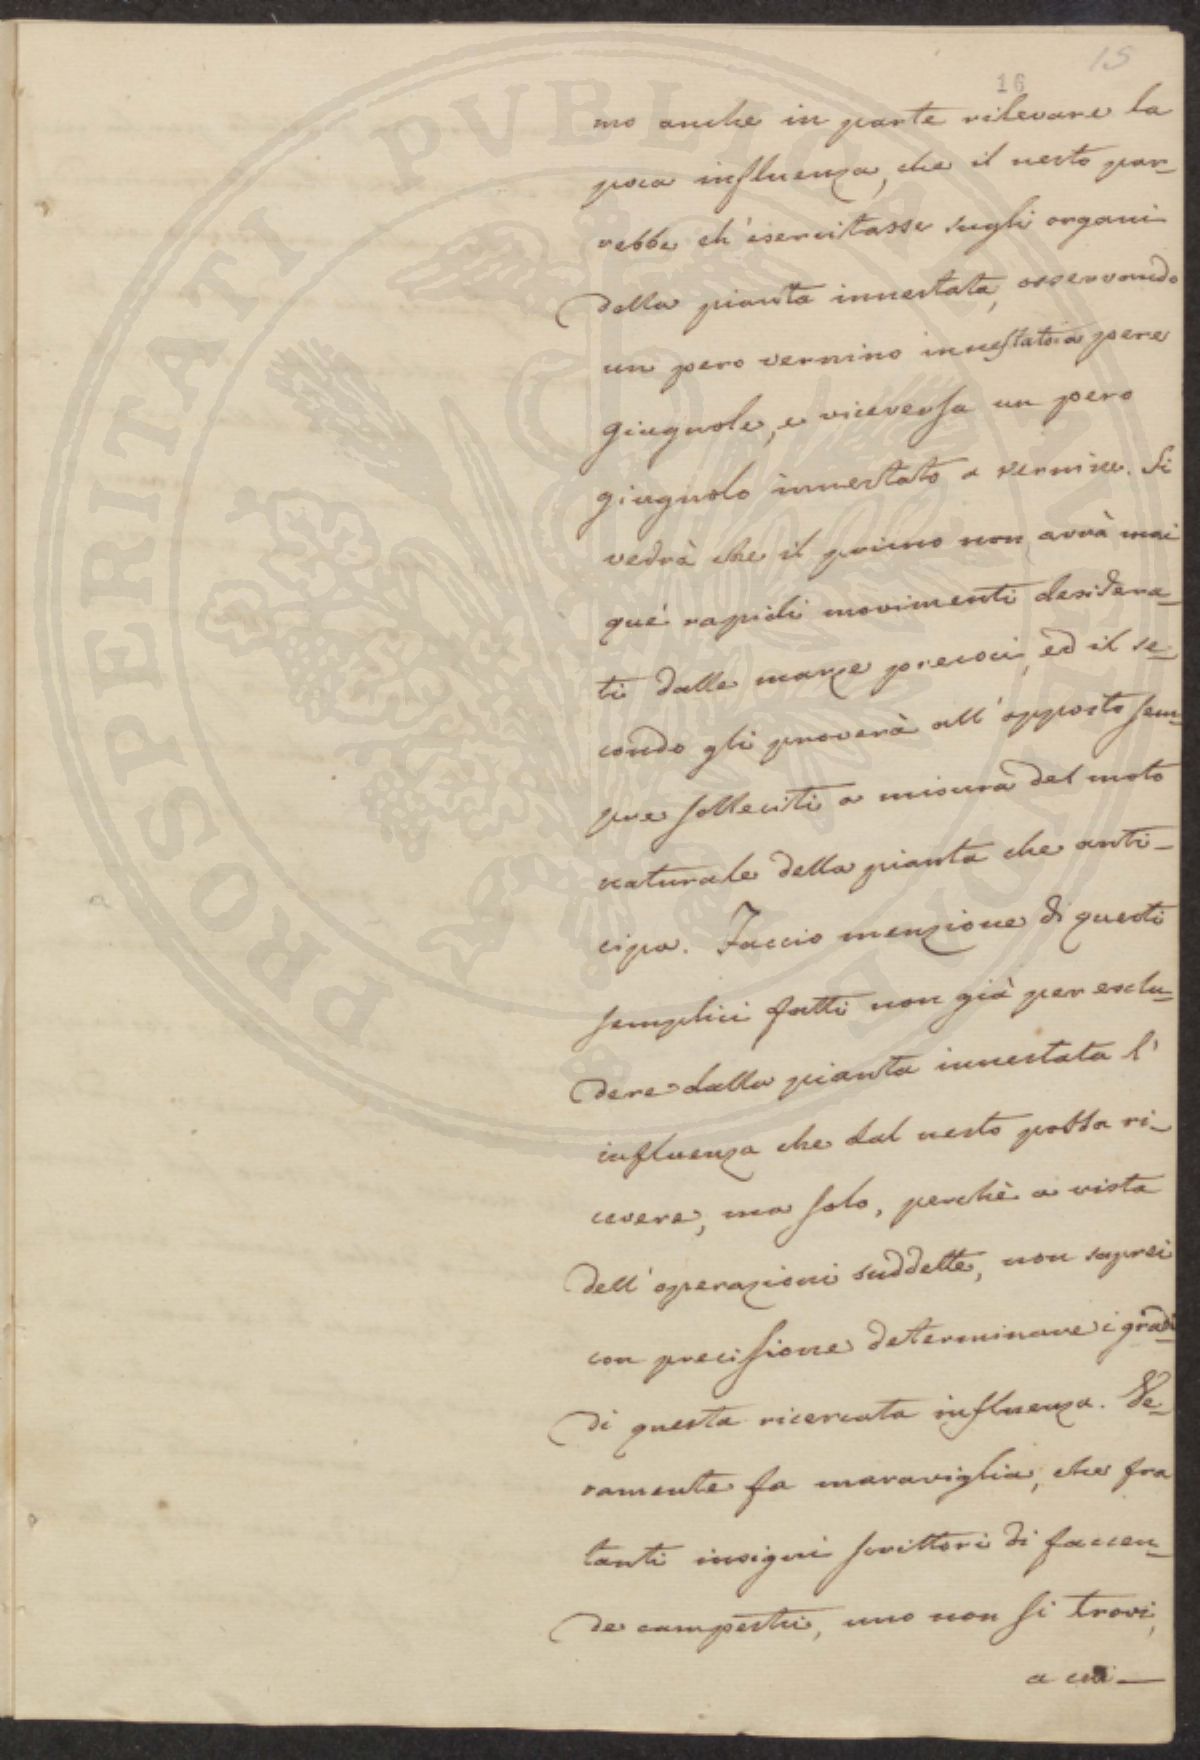 15
16
mo anche in parte rilevare la
poca influenza, che il nesto par-
rebbe ch'esercitasse sugli organi
della pianta innestata, osservando
un pero vernino innestato a pere
giugnole, e viceversa un pero
giugnolo innestato a vernine. Si
vedrà che il primo non avrà mai
que' rapidi movimenti desidera-
ti dalle marze precoci, ed il se-
condo gli proverà all'opposto sem-
pre solleciti a misura del moto
naturale della pianta che anti-
cipa. Faccio menzione di questi
semplici fatti non già per esclu-
dere dalla pianta innestata l'
influenza che dal nesto possa ri-
cevere, ma solo, perchè a vista
dell'operazioni suddette, non saprei
con precisione determinare i gradi
di questa ricercata influenza. Ve-
ramente fa maraviglia, che fra
tanti insigni scrittori di faccen-
de campestri, uno non si trovi,
a cui—
PROSPERITATI PVBLICAE AVGENDAE